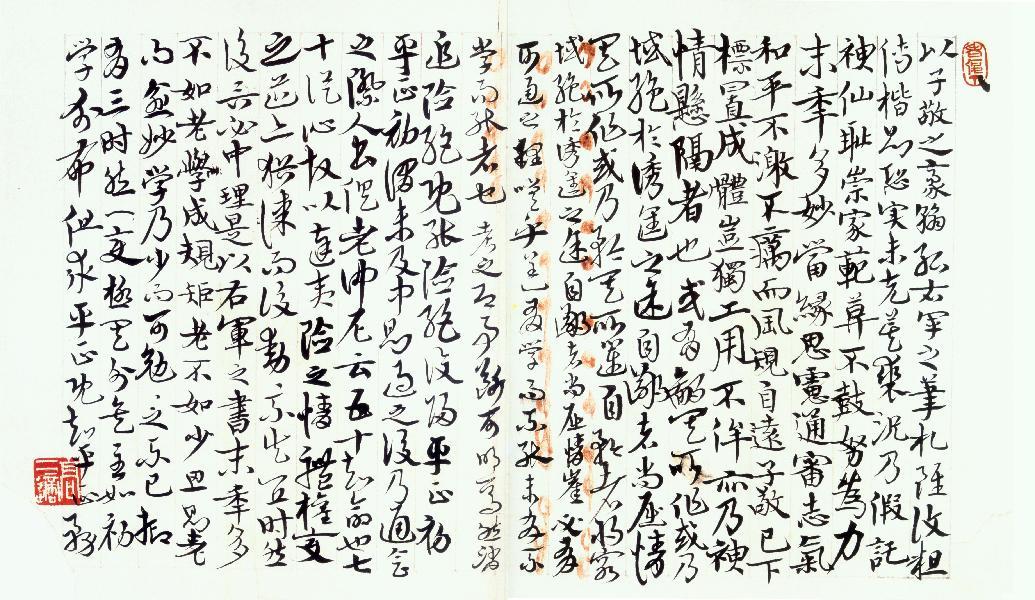 以子敬之豪翰紹右軍之筆札雖復粗
傳楷則恐實未克箕裘況乃假託
神仙恥崇家範莫不鼓努為力
末年多妙當緣思慮通審志氣
和平不激不厲而風規自遠子敬已下
標置成體豈獨工用不侔亦乃神
情懸隔者也或有鄙其所作或乃
域絕於誘進之途自鄙者尚屈情
其所作或乃矜其所運自矜者將窮
域絕於誘進之途自鄙者尚屈情崖必有
可通之理嗟乎蓋有學而不能未有不
學而能者也考之即事斷可明焉然
追險絕既能險絕復歸平正初
平正初謂未及中則過之後乃通會
之際人書俱老仲尼云五十知命也七
十從心故以達夷險之情體權變
之道亦猶謀而後動動不失宜時然
後言必中理是以右軍之書末年多
不如老學成規矩老不如少思則老
而愈妙學乃少而可勉勉之不已抑
有三時然一變極其分矣至如初
學分布但求平正既知平正務